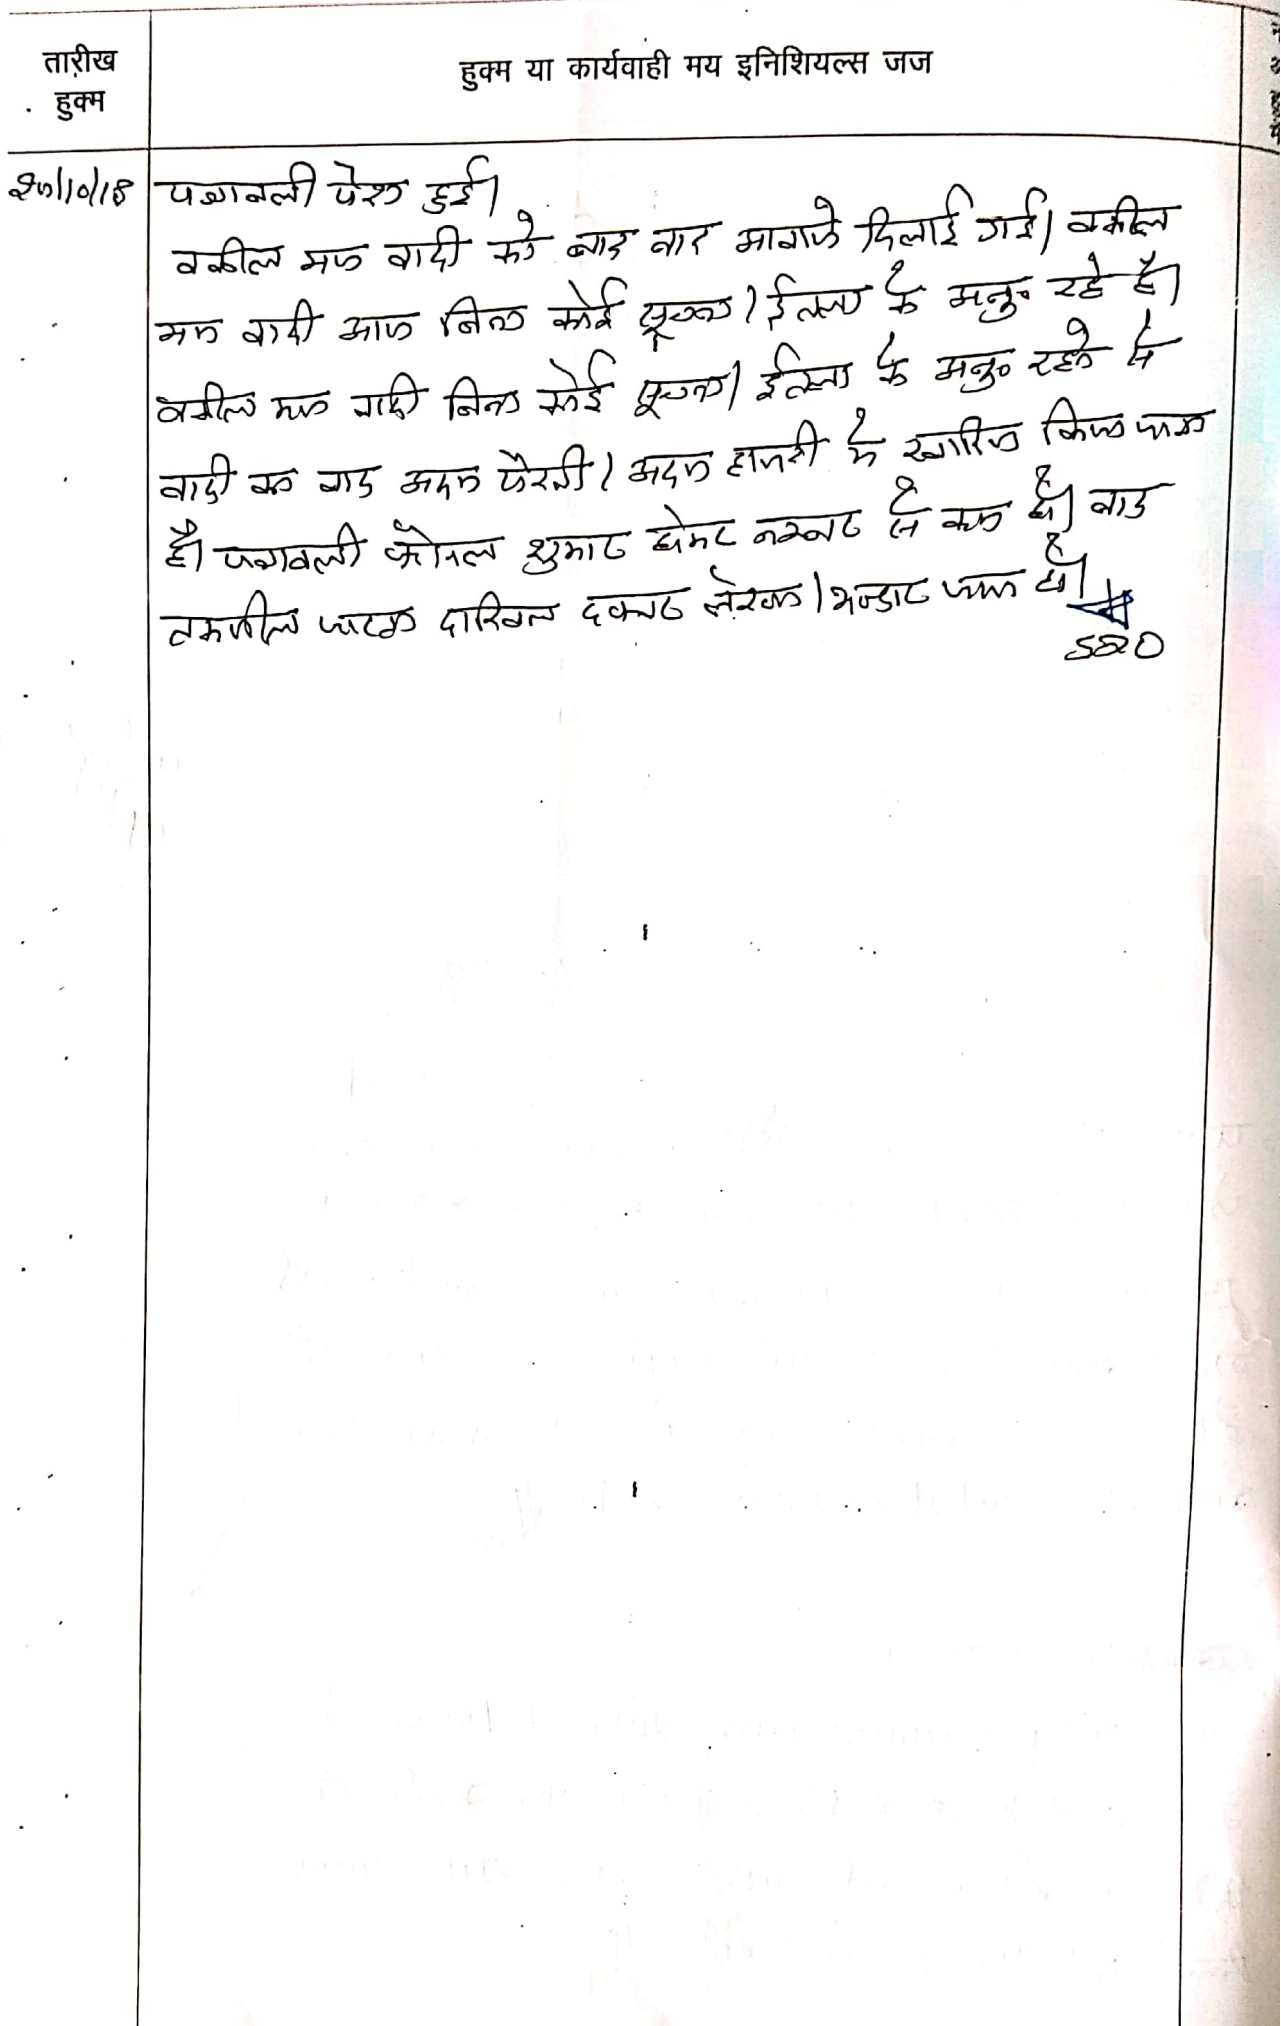 तारीख
हुक्म
हुक्म या कार्यवाही मय इनिशियल्स जज
पत्रावली पेश हुई।
वकील मय वादी को बार बार आवाजे दिलाई गई। वकील
मय वादी आज बिना कोई सूचना / ईत्तला के अनु० रहे है।
वकील मय वादी बिना कोई सूचना / ईत्तला के अनु० रहने से
वादी का वाद अदम पैरवी / अदम हाजरी मे खारिज किया जाता
है। पत्रावली फैसल शुमार होकर नम्बर से कम हो। बाद
तकमील जाब्ता दाखिल दफ्तर लेखा / भण्डार जमा हो।
SDO